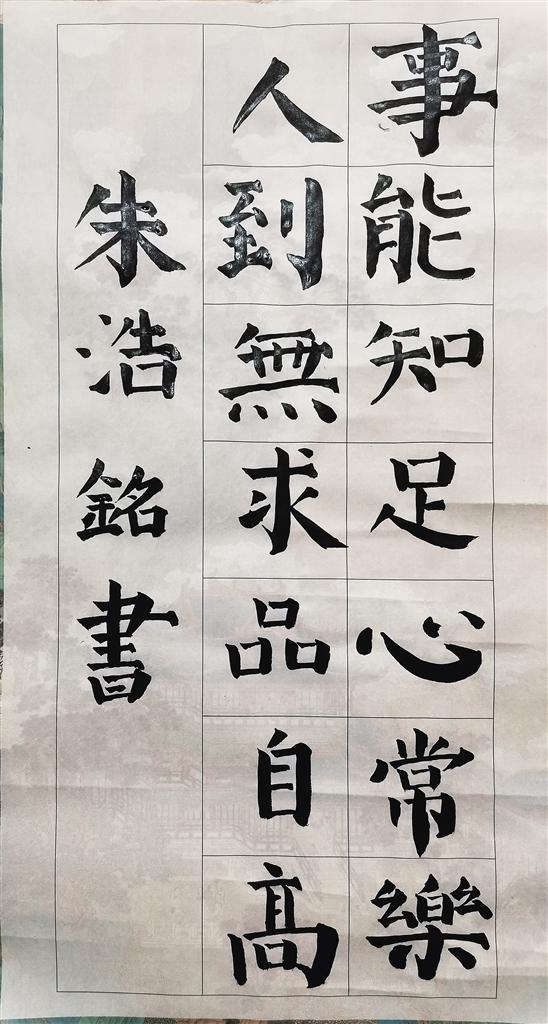 事能知足心常樂
人到無求品自高
朱浩銘書